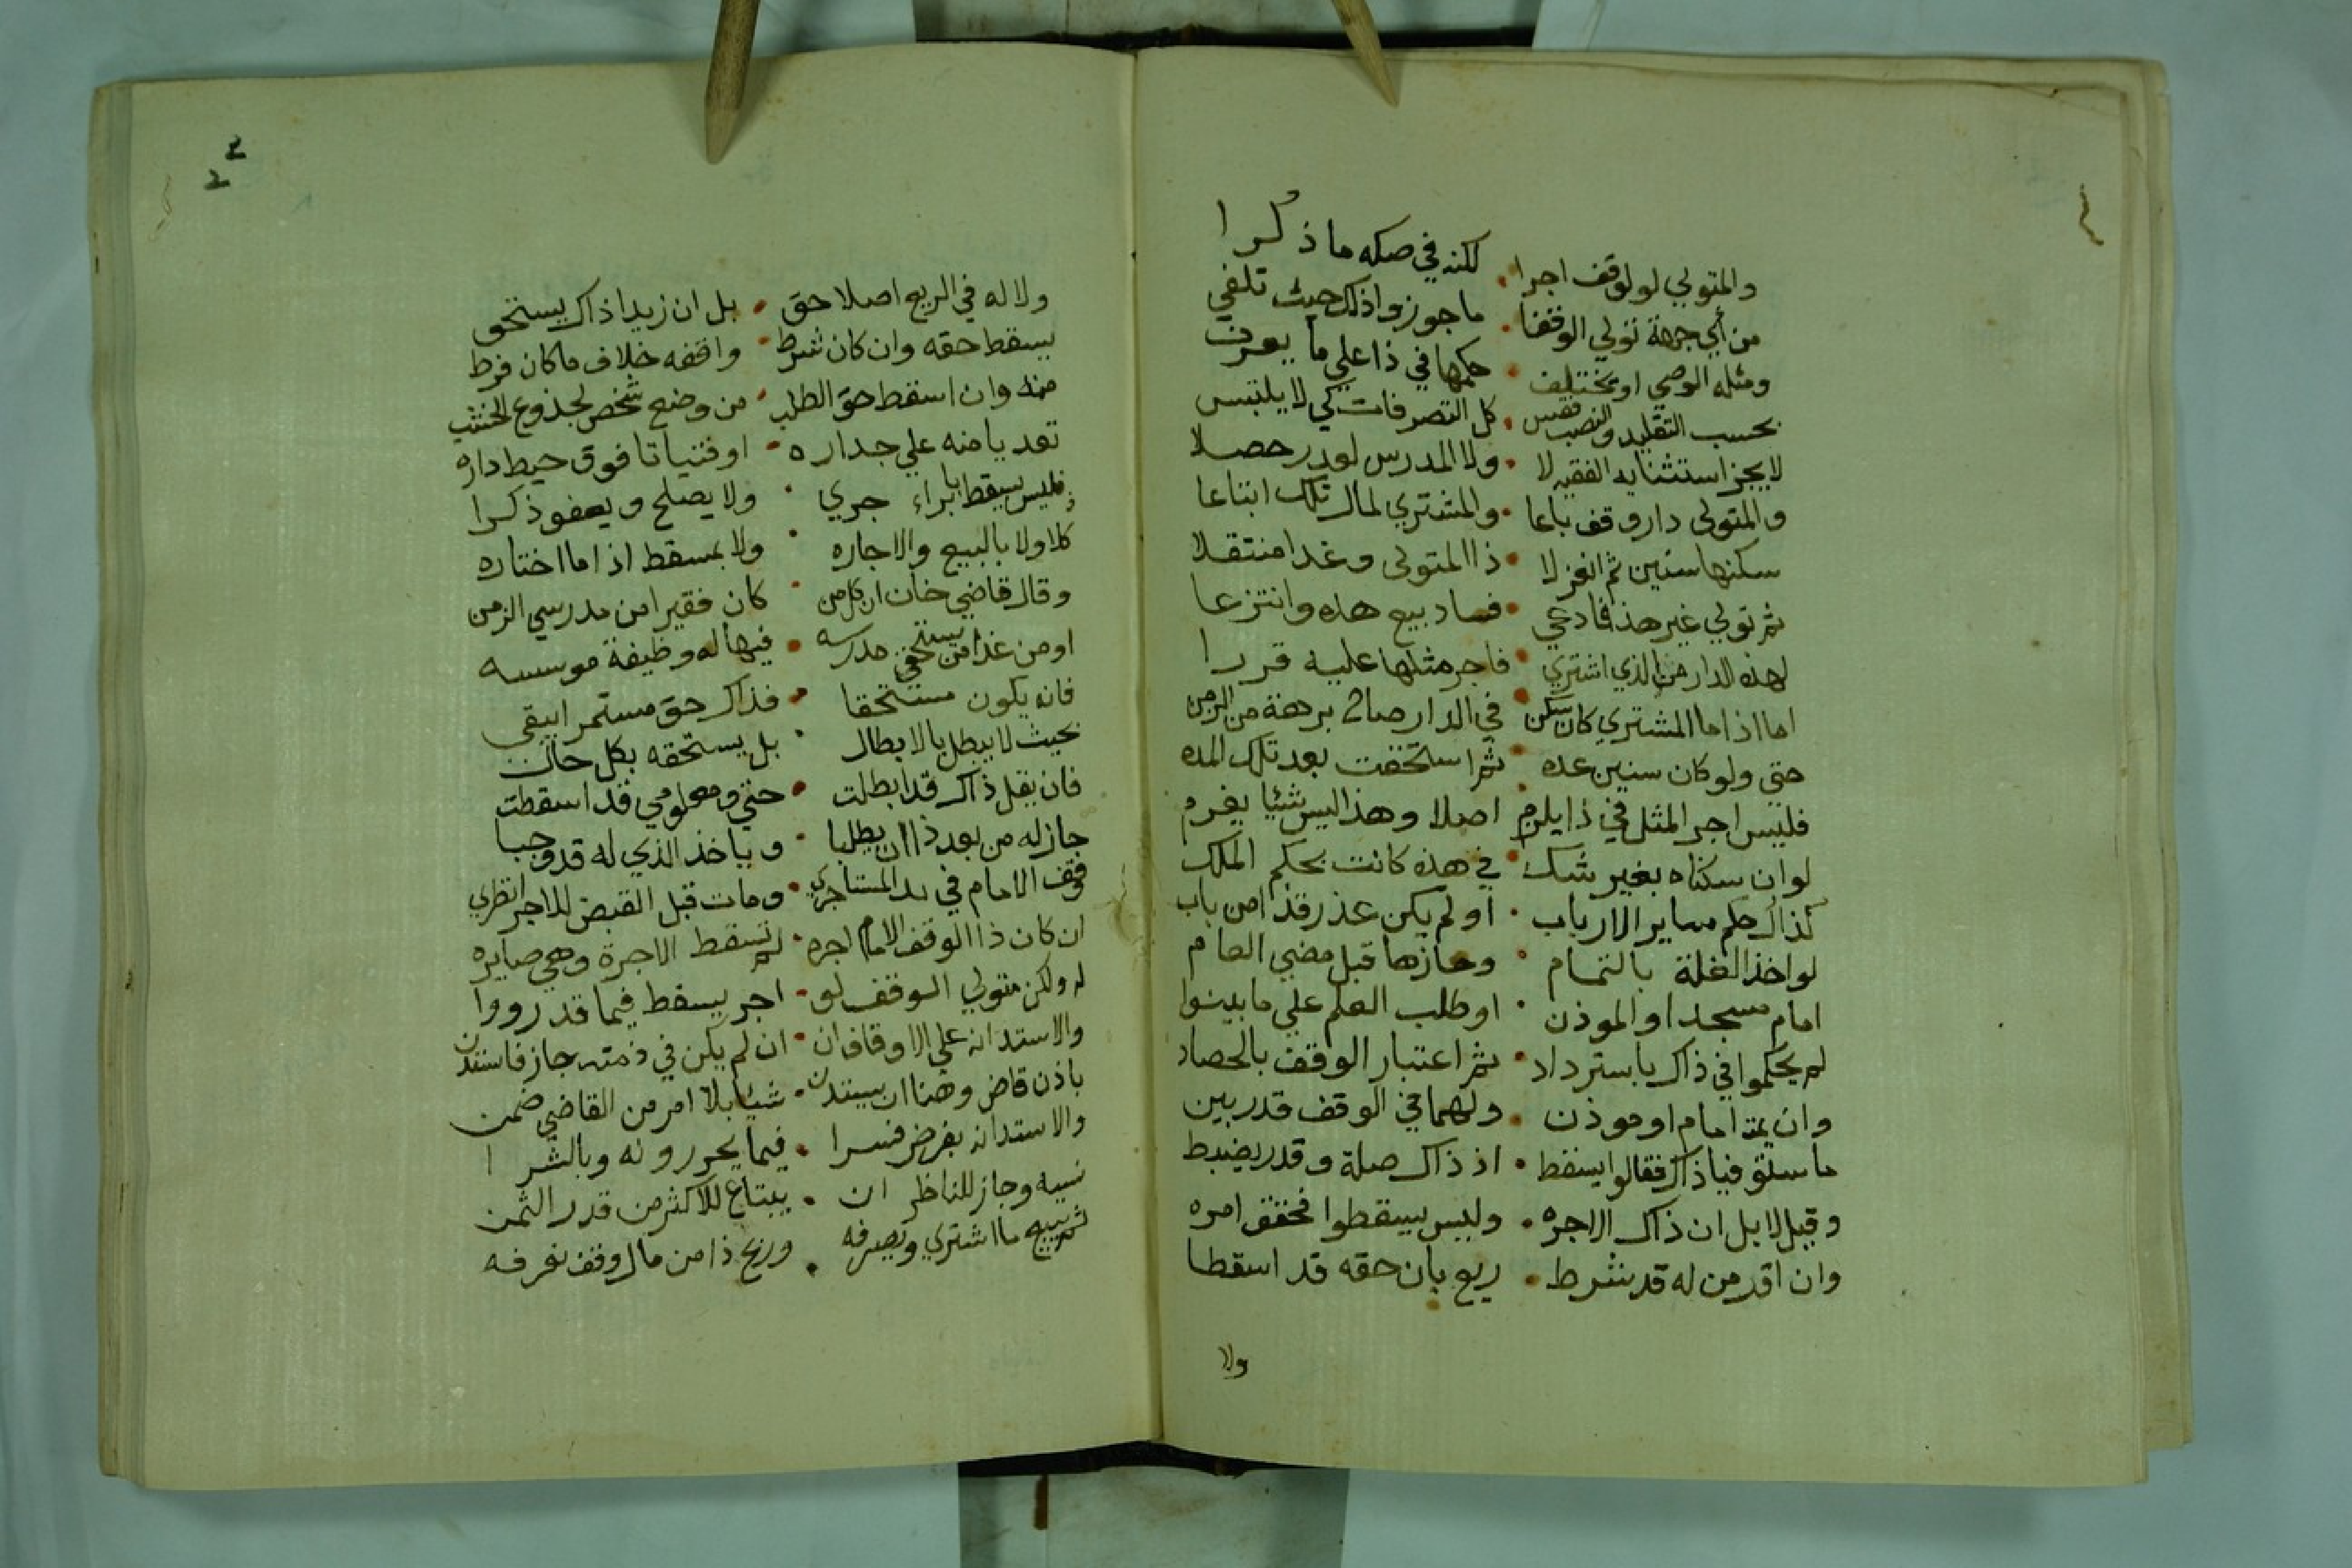 والمتولي لو لوقف اجرا • لكنه في صكه ما ذكرا
من أي جهة تولي الوقفا • ما جوزوا ذلك حيث تلفي
ومثله الوصي او يختلف • حكمها في ذا علي ما يعرف
بحسب التقليد والنصب فقس • كل التصرفات كي لا يلتبس
لا يجز استنابه الفقيه لا • ولا المدرس لعذر حصلا
والمتولي دار وقف باعا • والمشتري لمال تلك ابتاعا
سكنها سنين ثم انعزلا • ذا المتولي وغدا منتقلا
ثم تولي غير هذا فادعي • فساد بيع هذه وانتزعا
لهذه الدار من الذي اشتري • فاجر مثلها عليه قررا
اما اذا ما المشتري كان سكن • في الدار برهة من الزمن
حتي ولو كان سنين عده • ثم استحقت بعد تلك المده
فليس اجر المثل في ذا يلزم • اصلا وهذا ليس شيئا يغرم
لو ان سكناه بغير شك • في هذه كانت بحكم الملك
كذاك حكم ساير الارباب • او لم يكن عذر فذا من باب
لو اخذ الغلة بالتمام • وحازها قبل مضي العام
امام مسجد او الموذن • او طلب العلم علي ما بينوا
لم يحكموا في ذاك باسترداد • ثم اعتبار الوقف بالحصاد
وان يمت امام او موذن • ولهما في الوقف قدر بين
ما ستوفيا ذاك فقالوا يسقط • اذ ذاك صلة وقدر يضبط
وقيل لا بل ان ذاك الاجره • وليس يسقطوا فحقق امره
وان اقر من له قد شرط • ريع بان حقه قد اسقطا
ولا
ولا له في الريع اصلا حق • بل ان زيدا ذاك يستحق
يسقط حقه وان كان شرط • واقفه خلاف ما كان فرط
منه وان اسقط حق الطلب • من وضع شخص لجذوع الخشب
تعديا منه علي جداره • او فتياتا فوق حيط داره
فليس يسقط بابراء جري • ولا بصلح وبعفو ذكرا
كلا ولا بالبيع والاجاره • ولا بمسقط اذا ما اختاره
وقال قاضي خان ان كل من • كان فقيرا من مدرسي الزمن
او من غدا من مستحقي مدرسه • فيها له وظيفة موسسه
فانه يكون مستحقا • فذاك حق مستمر ايبقي
بحيث لا يبطل بالابطال • بل يستحقه بكل حال
فان يقل ذاك قد ابطلت • حتي ومعلومي قد اسقطت
جاز له من بعد ذا ان يطلبا • وياخذ الذي له قد وجبا
وقف الامام في يد المستاجر • ومات قبل القبض للاجر انظري
ان كان ذا الوقف الامام اجره • لم تسقط الاجرة وهي صايره
له ولكن متولي الوقف لو • اجر يسقط فيما قد رووا
والاستدانه علي الاوقاف ان • ان لم يكن في ذمته جاز فاستدن
باذن قاض وهنا ان يستدن • شيئا بلا امر من القاضي ضمن
والاستدانه بقرض فسرا • فيما يحررونه وبالشرا
نسيه وجاز للناظر ان • يبتاع للاكثر من قدر الثمن
ثم يبيع ما اشتري ويصرفه • وربح ذا من مال وقف نعرفه